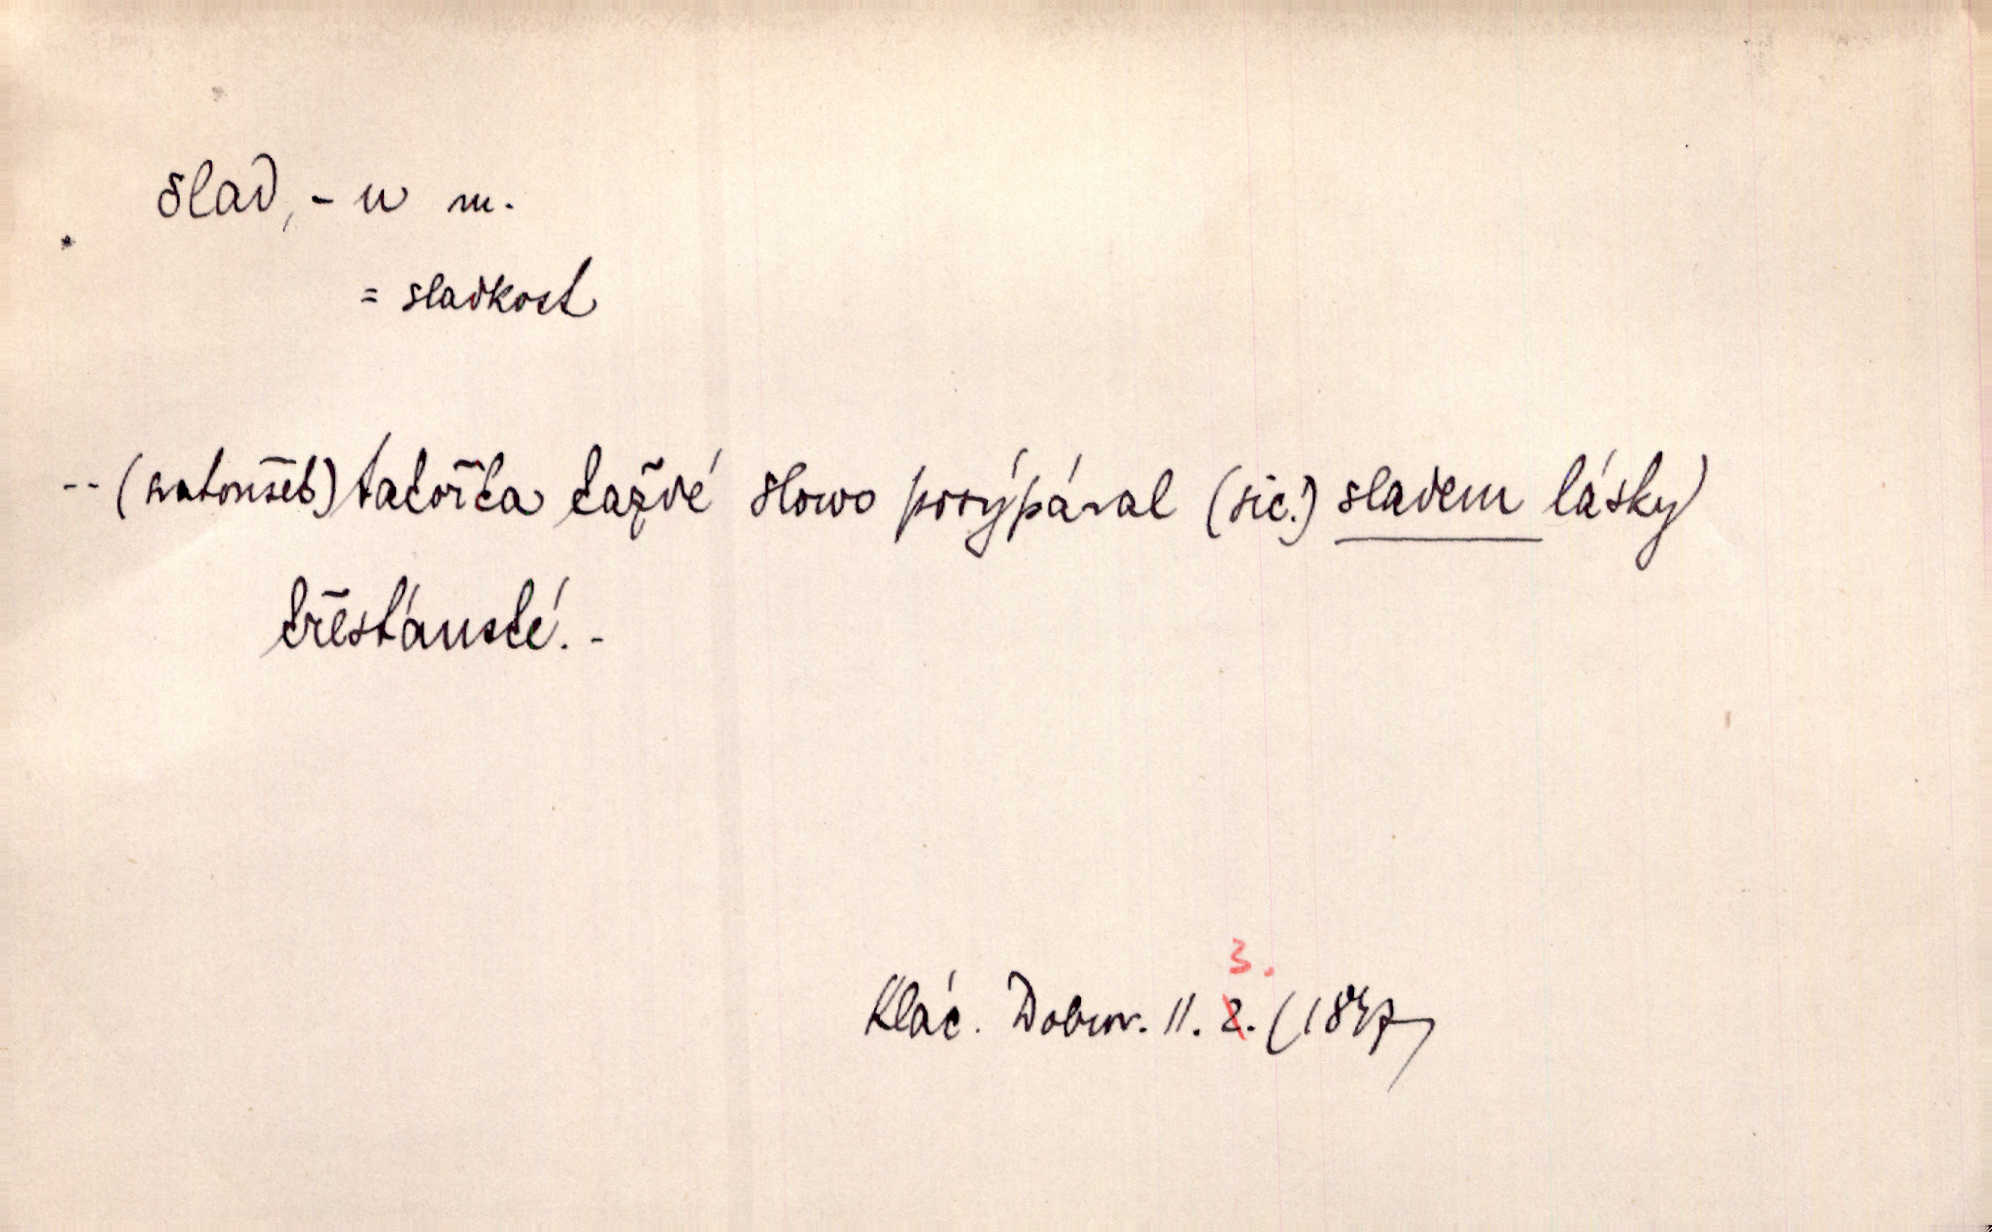 slad, -u m.
= sladkost
-- (svatoušek) takořka každé slowo posýpával (sic!) sladem lásky
křesťánské. -
3.
Klác. Dobrov. II. 2. (1847)